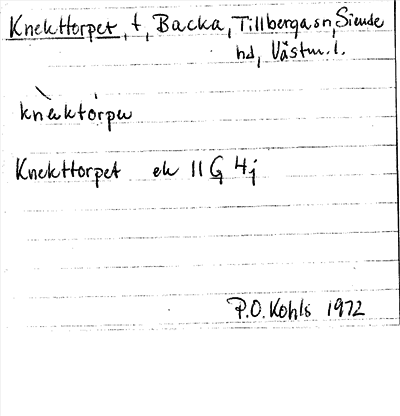 Knekttorpet, t, Backa, Tillberga sn, Siende
hd, Västm. l.
knèktórpə
Knekttorpet ek 11 G 4j
P.O. Kohls 1972